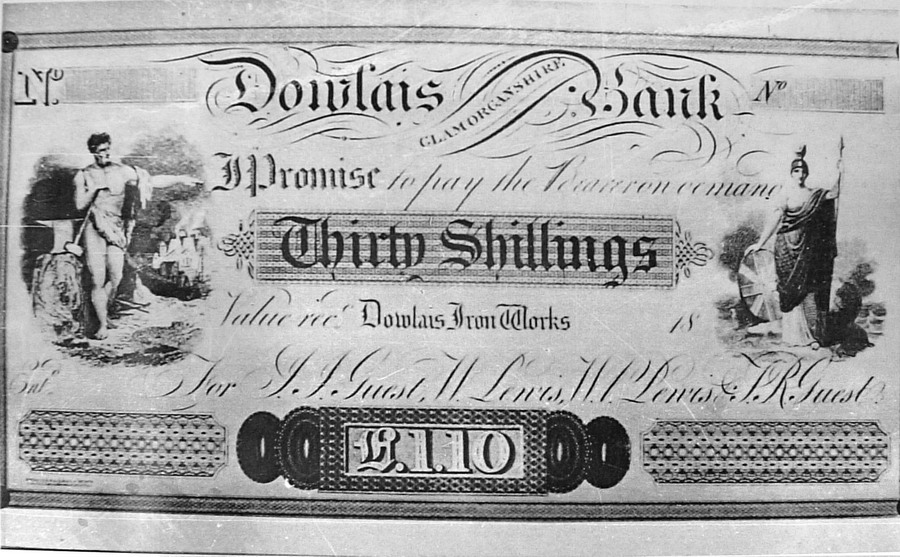 No. Dowlais Bank No
GLAMORGANSHIRE
I Promise to pay the Bearer on demand
Thirty Shillings
Value recd. Dowlais Iron Works 18
Entd.
For J. J. Guest, W. Lewis, W. C. Lewis & T. R. Guest
£.1.10